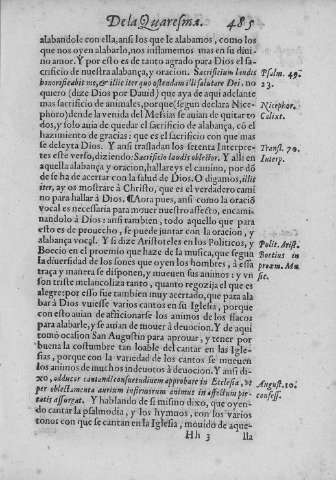 De la Quaresma. 485
alabandole con ella, ansi los que le alabamos, como los
que nos oyen alabarlo, nos inflamemos mas en su diui-
no amor. Y por esto es de tanto agrado para Dios el sa-
crificio de nuestra alabança, y oracion. Sacrificium laudis
honorificabit me, & illic iter quo ostendam illi salutare Dei. no
quiero (dize Dios por Dauid) que aya de aqui adelante
mas sacrificio de animales, porque (segun declara Nice-
phoro) dende la venida del Messias se auian de quitar to
dos, y solo auia de quedar el sacrificio de alabança, cõ el
hazimiento de gracias: que es el sacrificio con que mas
se deleyta Dios. Y ansi trasladan los setenta Interpre
tes este verso, diziendo: Sacrificio laudis oblector. Y alli en
aquella alabança y oracion, hallareys el camino, por dõ
de se ha de acertar con la salud de Dios. O digamos, illic
iter, ay os mostrare à Christo, que es el verdadero cami
no para hallar à Dios. ¶Aora pues, ansi como la oraciõ
vocal es necessaria para mouer nuestro afecto, encami-
nandolo à Dios: ansi tambien, todo aquello que para
esto es de prouecho, se puede juntar con la oracion, y
alabança vocal. Y si dize Aristoteles en los Politicos, y
Boecio en el proemio que haze de la musica, que segun
la diuersidad de los sones que oyen los hombres, à essa
traça y manera se disponen, y mueuen sus animos: y vn
son triste melancoliza tanto, quanto regozija el que es
alegre: por esso fue tambien muy acertado, que para ala
bar à Dios vuiesse varios cantos en su Iglesia, porque
con esto auian de aficionarse los animos de los flacos
para alabarle, y se auian de mouer à deuocion. Y de aqui
tomò ocasion San Augustin para aprouar, y tener por
buena la costumbre tan loable del cantar en las Igle-
sias, porque con la variedad de los cantos se mueuen
los animos de muchos indeuotos à deuocion. Y ansi di-
xo, adducor cantandi consuetudinem approbare in Ecclesia, vt
per oblectamenta aurium infirmorum animus in affectum pie-
tatis assurgat. Y hablando de si mismo dixo, que oyen-
do cantar la psalmodia, y los hymnos, con los varios
tonos con que se cantan en la Iglesia, mouido de aque-
Hh 3 lla
Psalm. 49.
23.
Nicephor.
Calixt.
Transl. 70.
Interp.
Polit. Arist.
Boetius in
proœm. Mu
sic.
August. 10.
confess.